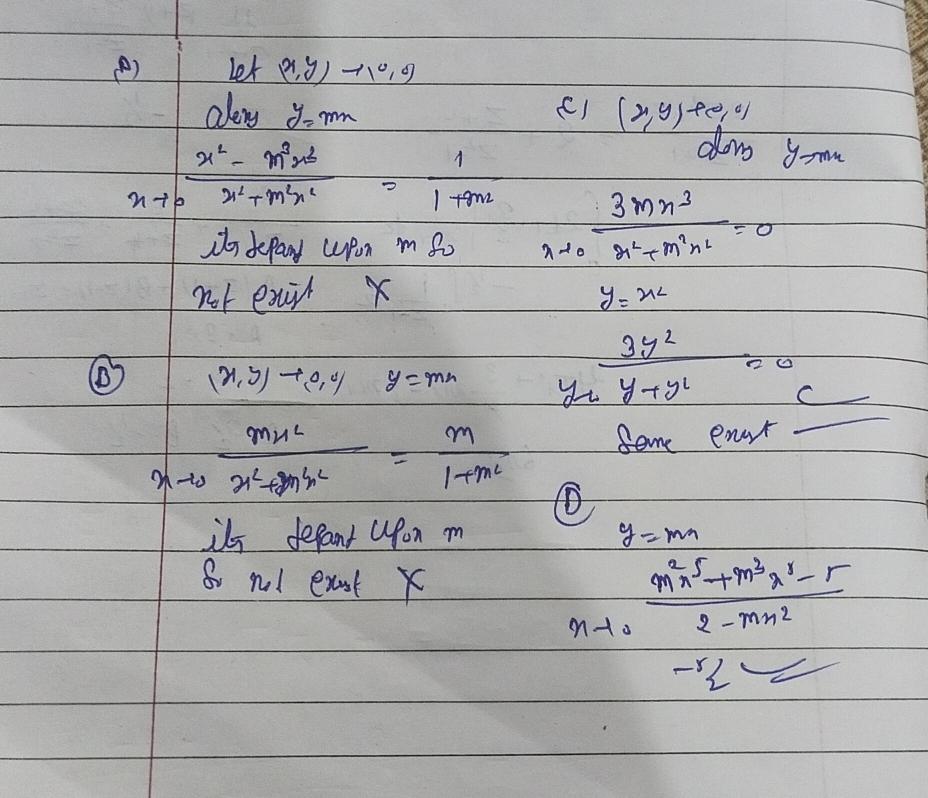 A) Let (x,y) → (0,0)
along y=mx
x→0 x² - m³x³ / x² + m²x² = 1 / 1+m²
its depand upon m So
not exist X
(B) (x,y) → 0,0) y=mx
x→0 mx² / x²+m²x² = m / 1+m²
its depand upon m
So not exist X
C) (x,y)→0,0)
along y=mx
x→0 3mx³ / x²+m²x² = 0
y=x²
3y² / y+y² = 0
Same exist C
(D)
y=mx
x→0 m²x⁵+m³x⁸-5 / 2-mx²
-5/2